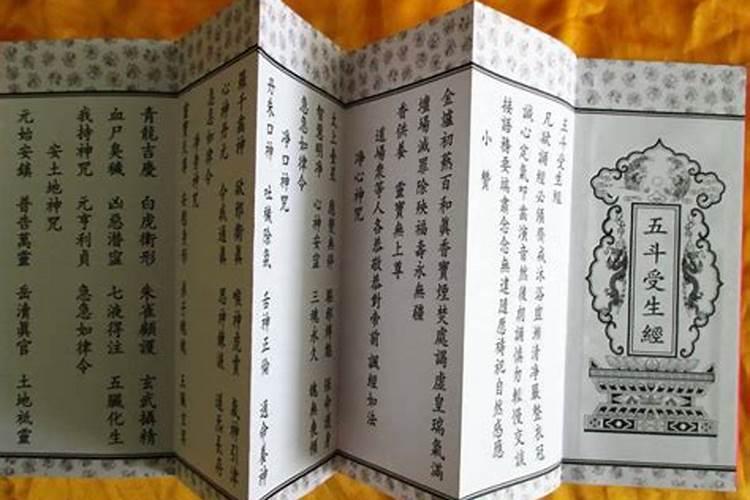 五斗受生經
五斗受生經
凡欲誦經必須齋戒沐浴盥漱清淨嚴整衣冠
誠心定氣叩齒演音然後朗誦慎勿輕慢交談
接語務要端肅念念無違隨應禱祀自然感應
小贊
金爐初爇百和真香寶煙焚處謁虛皇瑞氣滿
壇場滅罪除殃福壽永無疆
香供養 靈寶無上尊
道場衆等人各恭敬恭對帝前 誦經如法
淨心神咒
太上台星 應變無停 驅邪縛魅 保命護身
智慧明淨 心神安寧 三魂永久 魄無喪傾
急急如律令
淨口神咒
丹朱口神 吐穢除氛 舌神正倫 通命養神
羅千齒神 卻邪衛真 喉神虎賁 氣神引津
心神丹元 令我通真 思神鍊液 道炁長存
急急如律令
淨身神咒
靈寶天尊 安慰身形 弟子魂魄 五臟玄冥
青龍吉慶 白虎衛形 朱雀顧護 玄武攝精
血尸臭穢 凶惡潛寍 七液得注 五臟化生
我持神咒 元亨利貞 急急如律令
安土地神咒
元始安鎮 普告萬靈 岳瀆眞官 土地祗靈